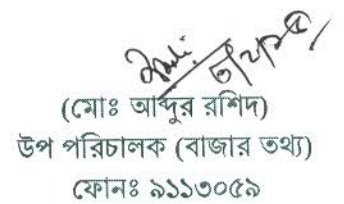 (মোঃ আব্দুর রশিদ)
উপ পরিচালক (বাজার তথ্য)
ফোনঃ ৯১১৩০৫৯